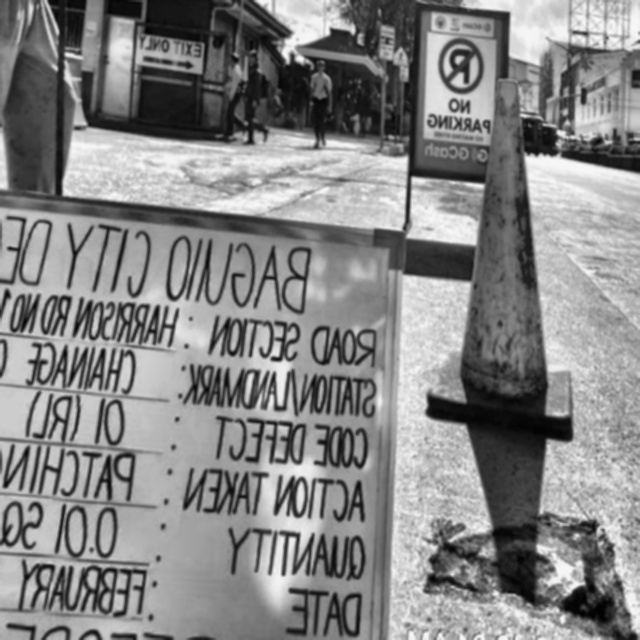 EXIT ONLY
R
NO
PARKING
GCash
BAGUIO CITY
ROAD SECTION : HARRISON RD NO
STATION/LANDMARK:
CHAINAGE
CODE DEFECT : 01 (RL)
ACTION TAKEN : PATCHIN
QUANTITY : 0.01 SQ
DATE : FEBRUARY